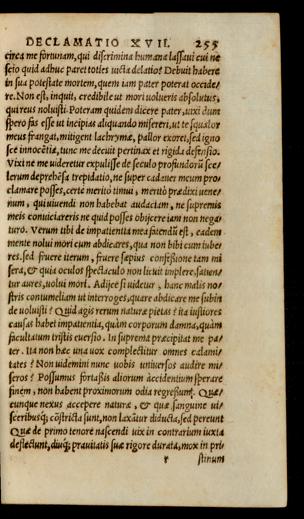 DECLAMATIO XVII. 255
circa me fortunam, qui discrimina humana lassaui cui ne
scio quid adhuc paret toties uicta delatio? Debuit habere
in sua potestate mortem, quem iam pater poterat occide/
re. Non est, inquit, credibile ut mori uolueris absolutus,
qui reus noluisti. Poteram quidem dicere pater, uixi dum
spero fas esse ut incipias aliquando misereri, ut te squalor
meus frangat, mitigent lachrymæ, pallor exoret, sed igno
sce innocētia, tunc me decuit pertinax et rigida defensio.
Vixi ne me uideretur expulisse de seculo profundorū sce/
lerum deprehēsa trepidatio, ne super cadauer meum pro/
clamare posses, certe merito timui, meritò prædixi uene/
num, qui uiuendi non habebat audaciam, ne supremis
meis conuiciareris ne quid posses obijcere iam non nega/
turo. Verum tibi de impatientia mea fatendū est, eadem
mente nolui mori cum abdicares, qua non bibi cum iube/
res. sed fruere iterum, fruere sæpius confessione tam mi
sera, & quia oculos spectaculo non licuit implere, satien/
tur aures, uolui mori. Adijce si uidetur, hanc malis no/
stris contumeliam ut interroges, quare abdicare me subin
de uoluisti? Quid agis rerum natura pietas? ita iustiores
causas habet impatientia, quàm corporum damna, quàm
facultatum tristis euersio. In suprema præcipitat me pa/
ter. Ita non hæc una uox complectitur omnes calami/
tates? Non uidemini nunc uobis uniuersos audire mi/
seros? Possumus fortassis aliorum accidentium sperare
finem, non habent proximorum odia regressum. Quæ/
cunque nexus accepere naturæ, & quæ sanguine ui/
sceribusq; cōstricta sunt, non laxātur diducta, sed pereunt
Quæ de primo tenore nascendi uix in contrarium iuxta
deflectunt, diuq; prauitatis suæ rigore durata, mox in pri/
r stinum